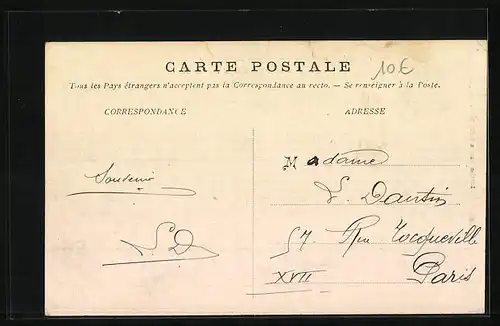 CARTE POSTALE
10€
Tous les Pays étrangers n'acceptent pas la Correspondance au recto. — Se renseigner à la Poste.
CORRESPONDANCE
ADRESSE
Madame
L. Dautin
57. Rue Tocqueville
XVII
Paris
Souvenir
LD